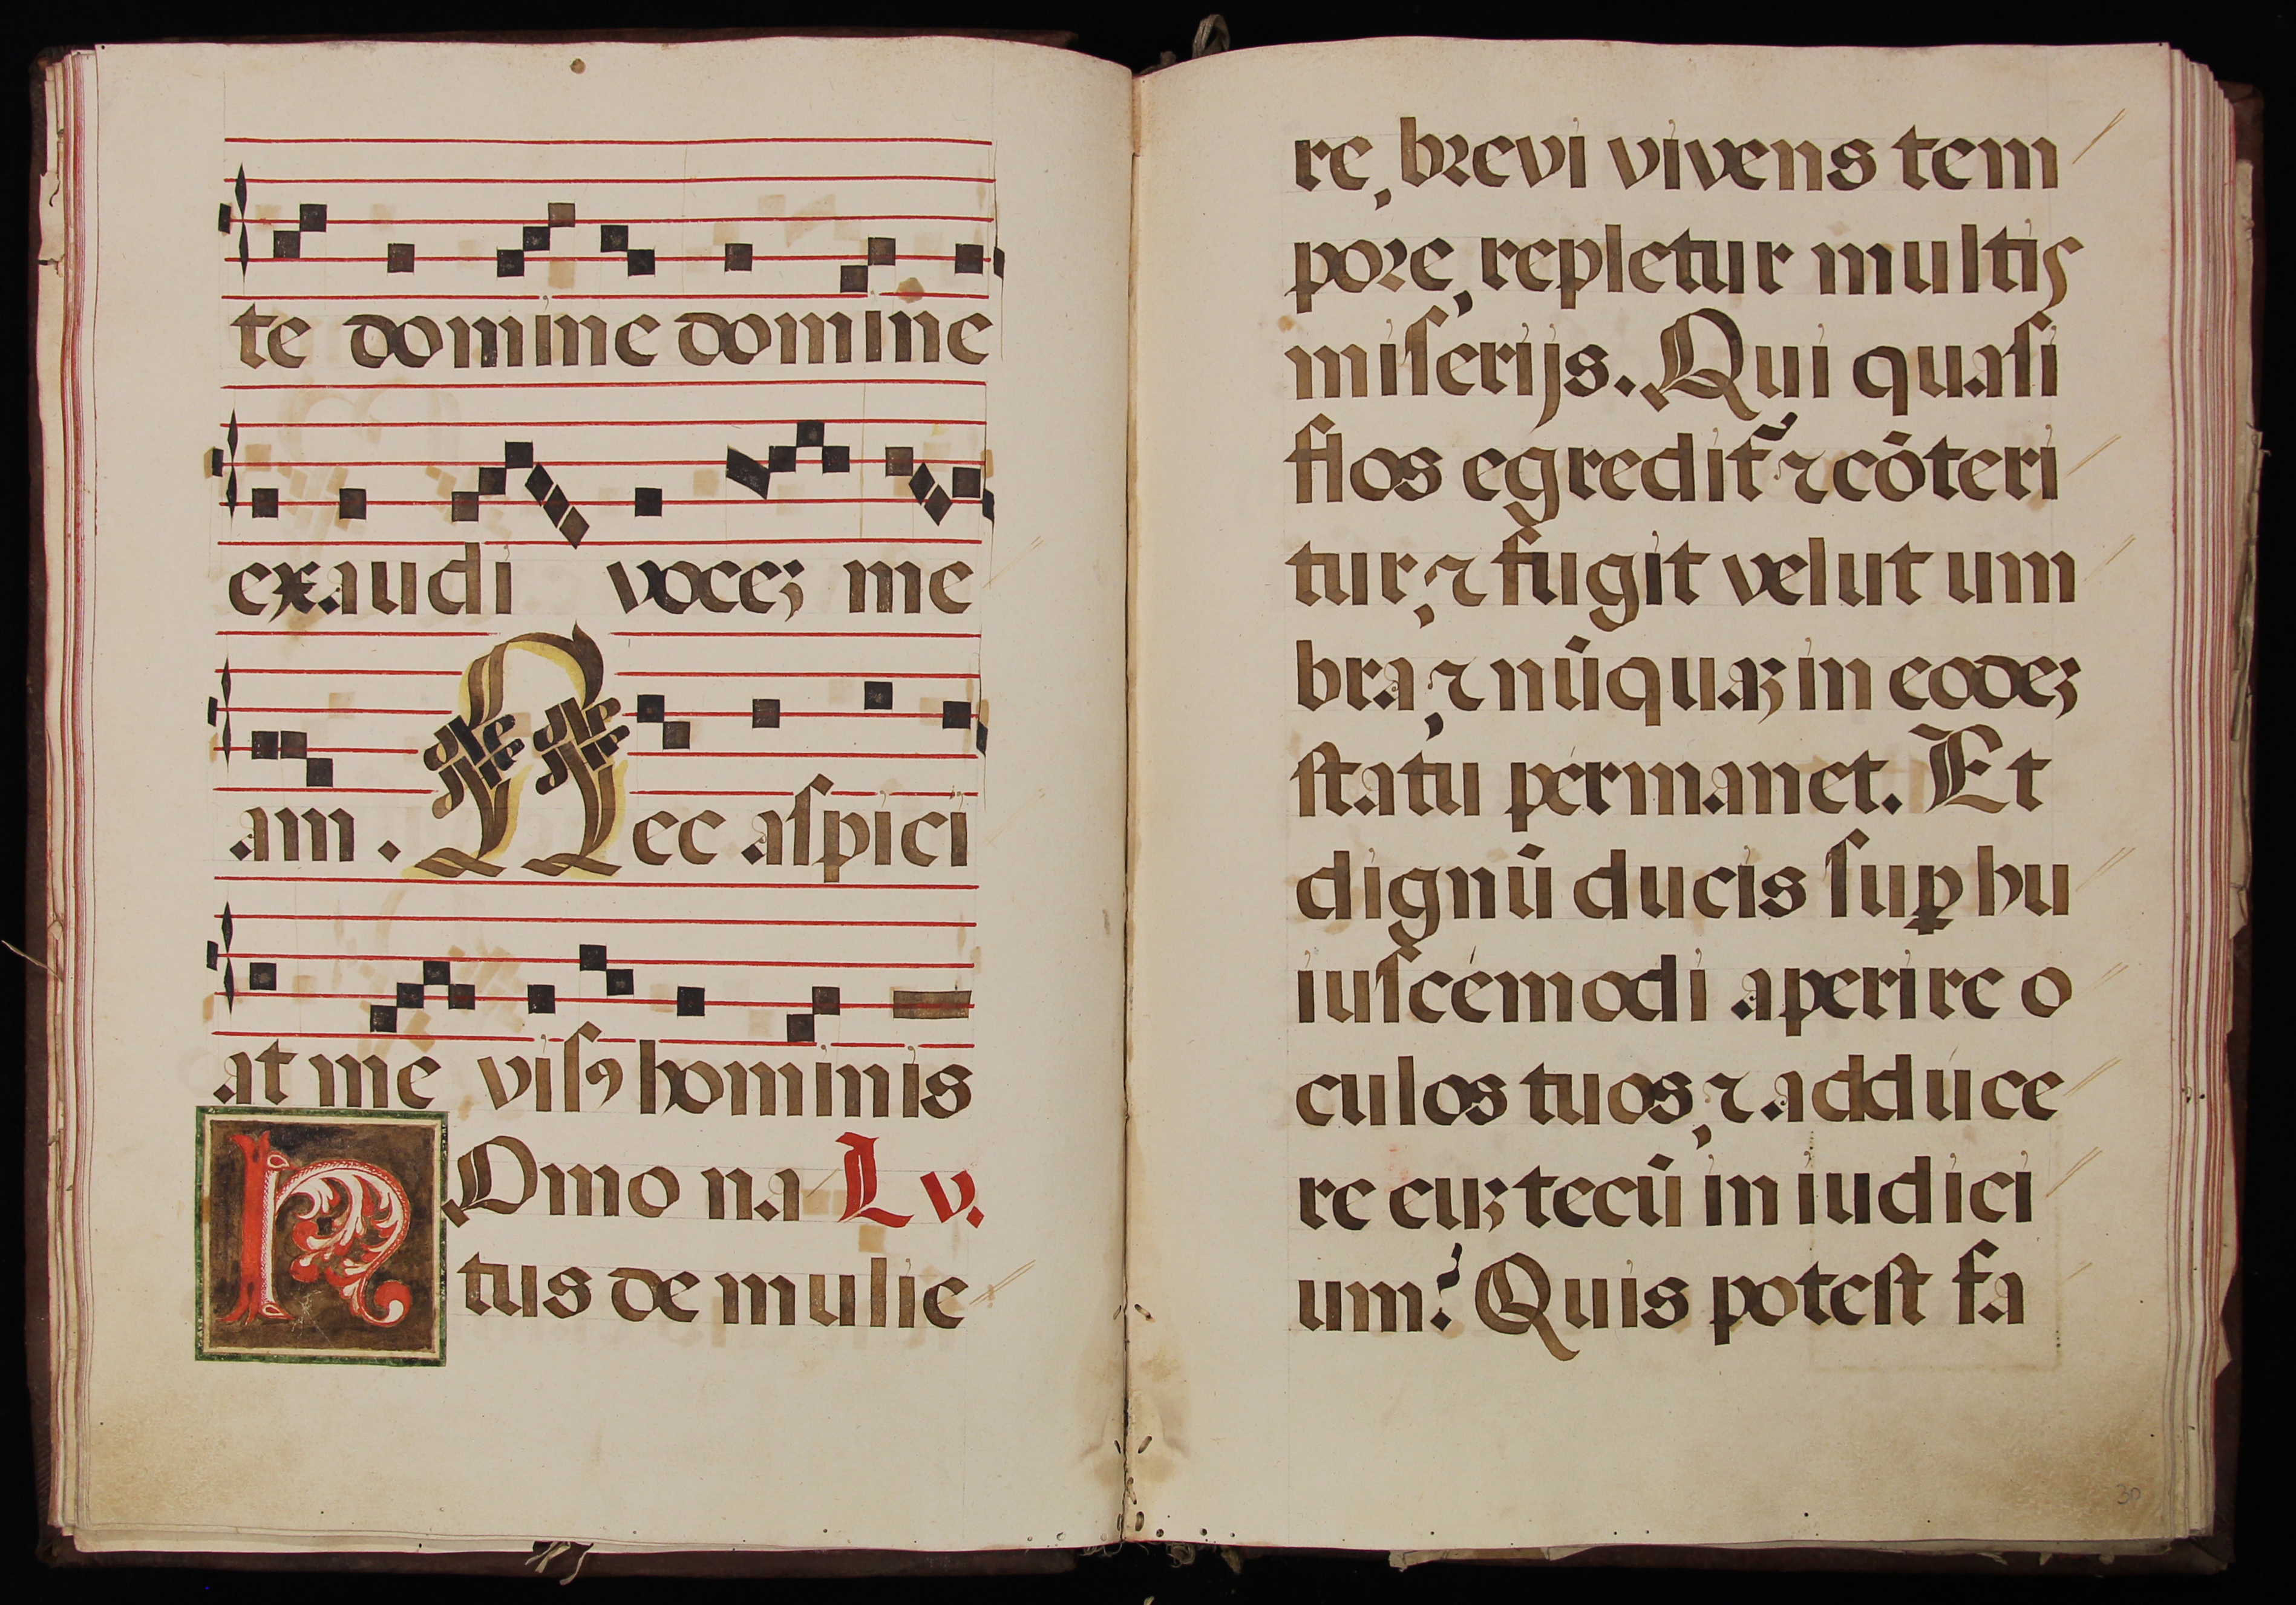 te domine domine
exaudi voceʒ me
am. Nec aſpici
at me viſꝯ hominis
HOmo na L v.
tus de mulie
re, brevi vivens tem
pore, repletur multis
miſerijs. Qui quaſi
flos egredit᷑ ⁊ cōteri
tur, ⁊ fugit velut um
bra, ⁊ nūquaʒ in eodeʒ
ſtatu pérmanet. Et
dignū ducis ſuꝑ hu
iuſcémodi aperire o
culos tuos, ⁊ addúce
re euʒ tecū in iudici
um? Quis poteſt fa
30